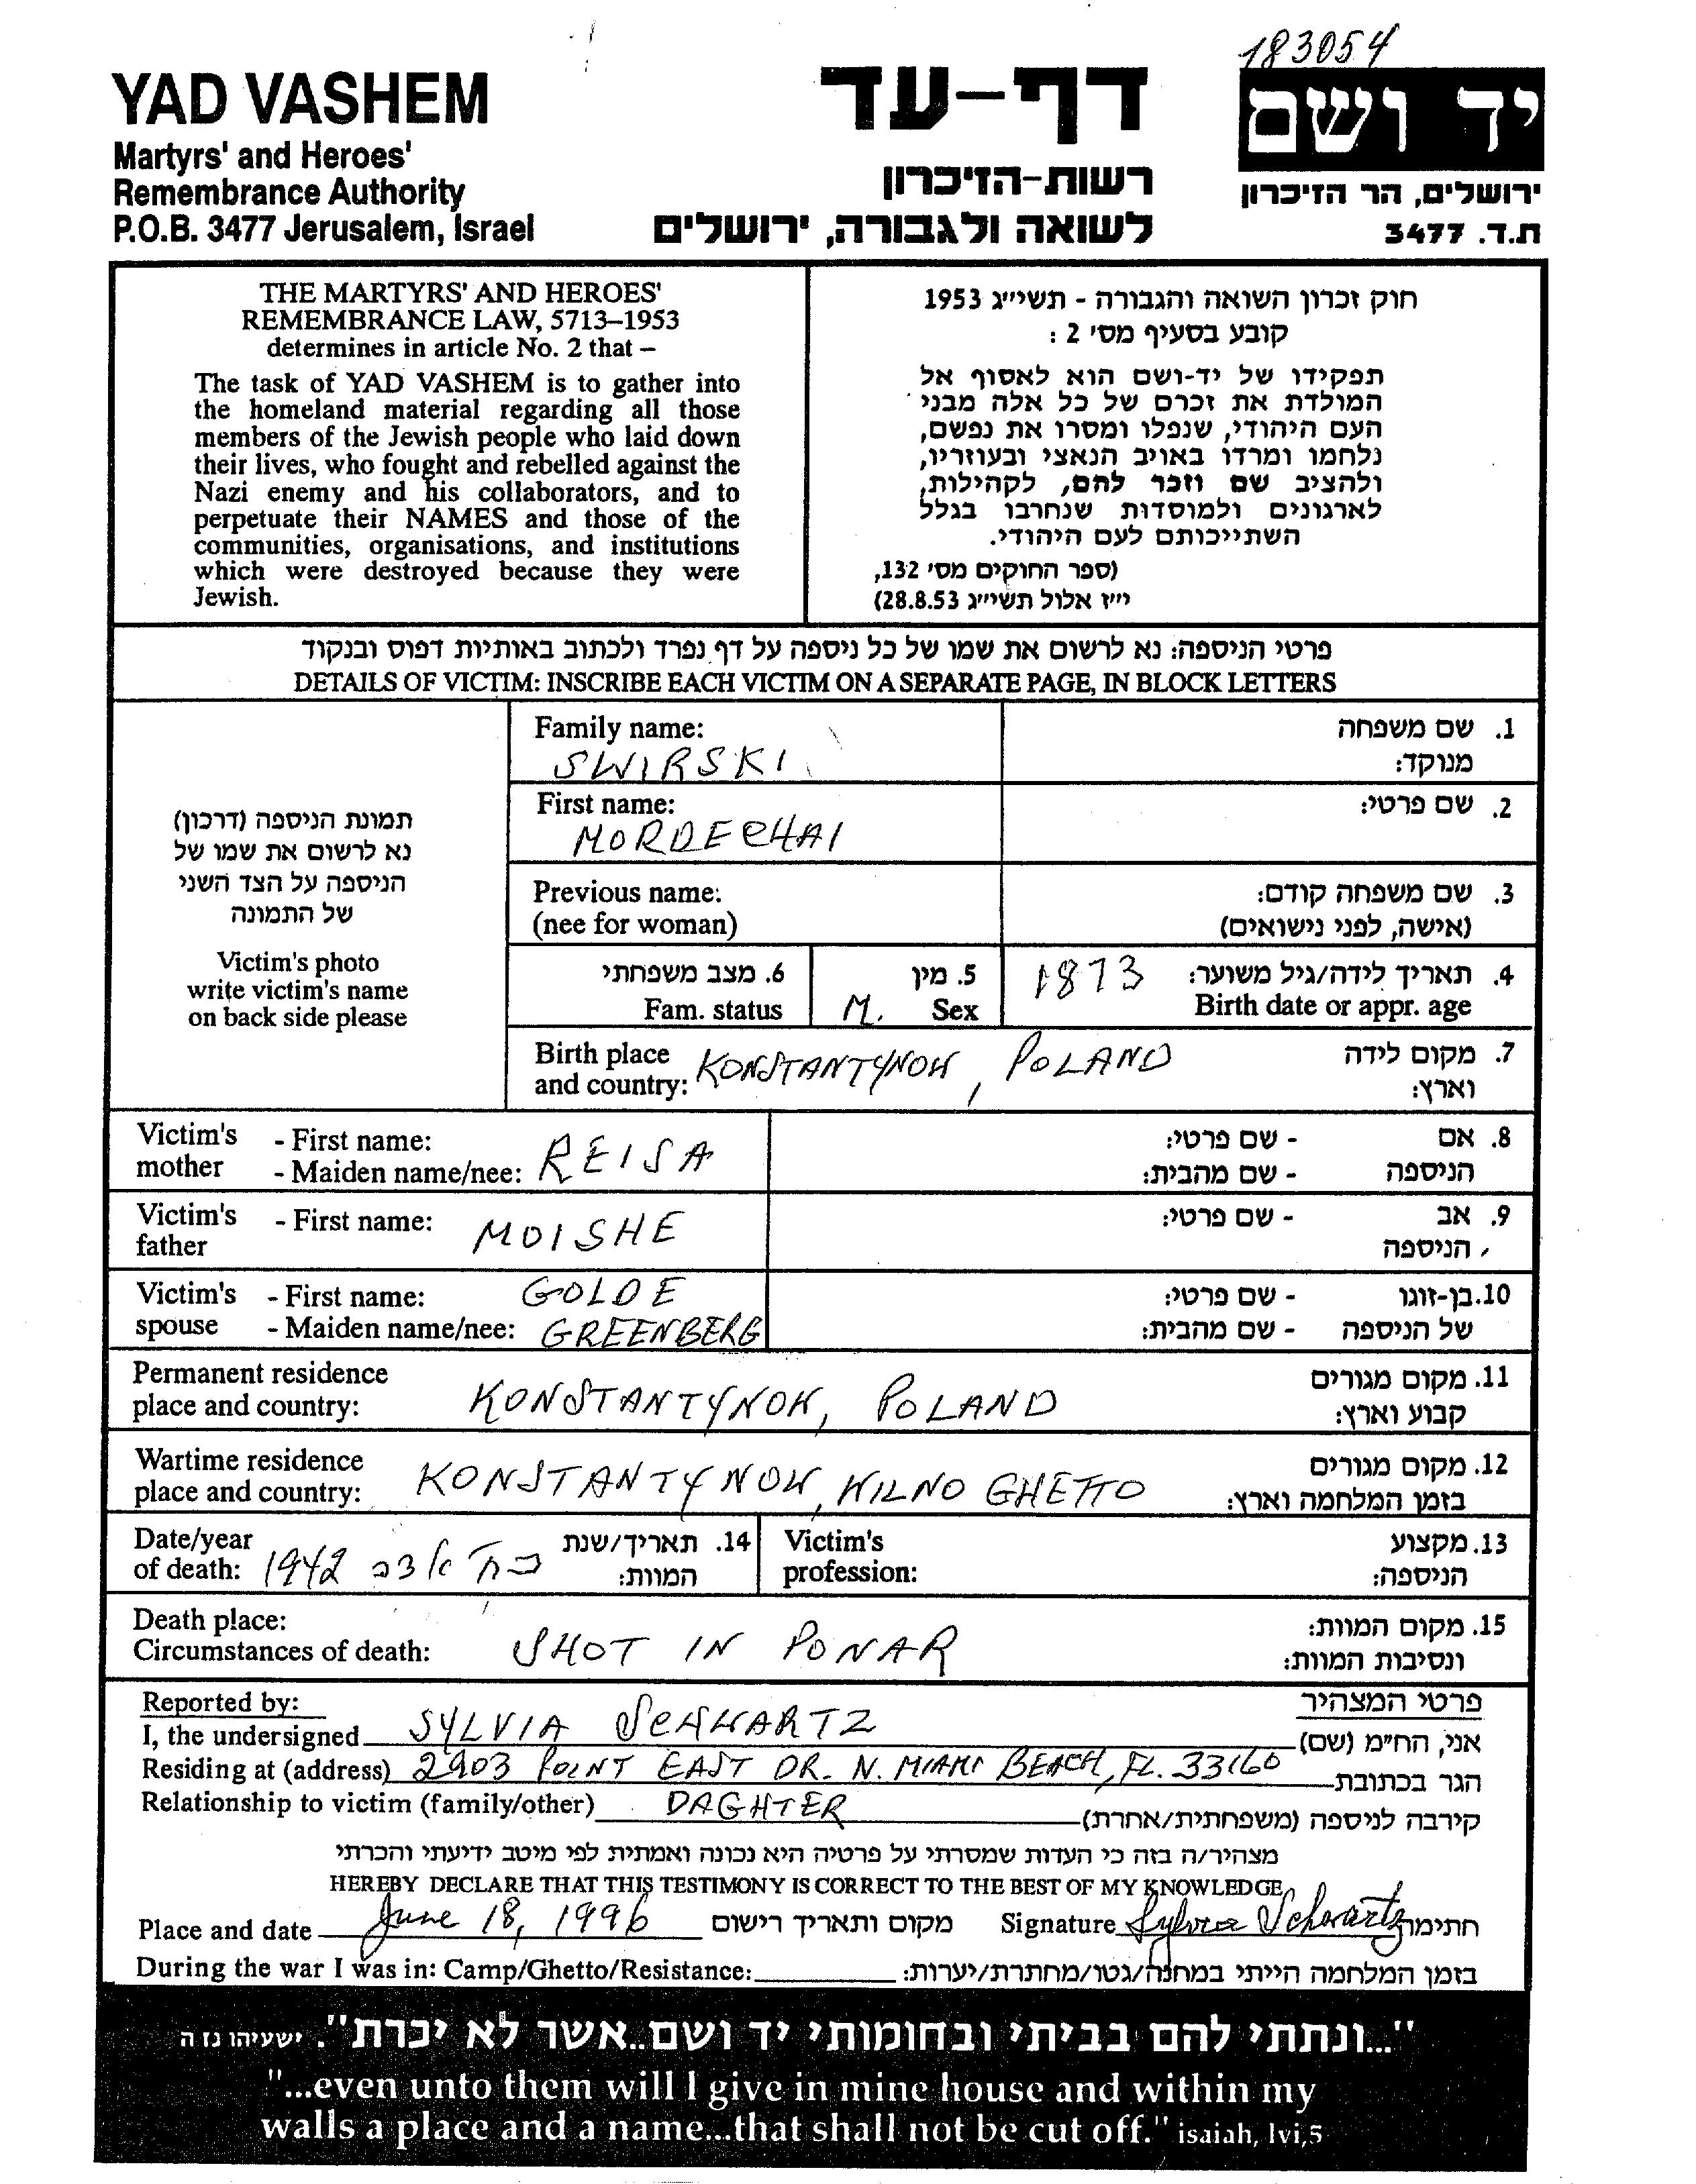 183054
YAD VASHEM
Martyrs' and Heroes'
Remembrance Authority
P.O.B. 3477 Jerusalem, Israel
דף-עד
רשות-הזיכרון
לשואה ולגבורה, ירושלים
יד ושם
ירושלים, הר הזיכרון
ת.ד. 3477
THE MARTYRS' AND HEROES'
REMEMBRANCE LAW, 5713–1953
determines in article No. 2 that –
The task of YAD VASHEM is to gather into
the homeland material regarding all those
members of the Jewish people who laid down
their lives, who fought and rebelled against the
Nazi enemy and his collaborators, and to
perpetuate their NAMES and those of the
communities, organisations, and institutions
which were destroyed because they were
Jewish.
חוק זכרון השואה והגבורה - תשי״ג 1953
קובע בסעיף מס׳ 2 :
תפקידו של יד-ושם הוא לאסוף אל
המולדת את זכרם של כל אלה מבני
העם היהודי, שנפלו ומסרו את נפשם,
נלחמו ומרדו באויב הנאצי ובעוזריו,
ולהציב שם וזכר להם, לקהילות,
לארגונים ולמוסדות שנחרבו בגלל
השתייכותם לעם היהודי.
(ספר החוקים מס׳ 132,
י״ז אלול תשי״ג 28.8.53)
פרטי הניספה: נא לרשום את שמו של כל ניספה על דף נפרד ולכתוב באותיות דפוס ובנקוד
DETAILS OF VICTIM: INSCRIBE EACH VICTIM ON A SEPARATE PAGE, IN BLOCK LETTERS
תמונת הניספה (דרכון)
נא לרשום את שמו של
הניספה על הצד השני
של התמונה
Victim's photo
write victim's name
on back side please
Family name: 1. שם משפחה
SWIRSKI מנוקד:
First name: 2. שם פרטי:
MORDECHAI
Previous name: 3. שם משפחה קודם:
(nee for woman) (אישה, לפני נישואים)
6. מצב משפחתי 5. מין 1873 4. תאריך לידה/גיל משוער:
Fam. status M. Sex Birth date or appr. age
Birth place KONSTANTYNOW, POLAND 7. מקום לידה
and country: וארץ:
Victim's - First name: REISA - שם פרטי: 8. אם
mother - Maiden name/nee: - שם מהבית: הניספה
Victim's - First name: MOISHE - שם פרטי: 9. אב
father הניספה
Victim's - First name: GOLDE - שם פרטי: 10. בן-זוגו
spouse - Maiden name/nee: GREENBERG - שם מהבית: של הניספה
Permanent residence 11. מקום מגורים
place and country: KONSTANTYNOW, POLAND קבוע וארץ:
Wartime residence 12. מקום מגורים
place and country: KONSTANTYNOW, WILNO GHETTO בזמן המלחמה וארץ:
Date/year 14. תאריך/שנת Victim's 13. מקצוע
of death: 1942 המוות: profession: הניספה:
Death place: 15. מקום המוות:
Circumstances of death: SHOT IN PONAR ונסיבות המוות:
Reported by: פרטי המצהיר
I, the undersigned SYLVIA SCHWARTZ אני, החי״מ (שם)
Residing at (address) 2903 POINT EAST DR. N. MIAMI BEACH, FL. 33160 הגר בכתובת
Relationship to victim (family/other) DAGHTER קירבה לניספה (משפחתית/אחרת)
מצהיר/ה בזה כי העדות שמסרתי על פרטיה היא נכונה ואמתית לפי מיטב ידיעתי והכרתי
HEREBY DECLARE THAT THIS TESTIMONY IS CORRECT TO THE BEST OF MY KNOWLEDGE
Place and date June 18, 1996 מקום ותאריך רישום Signature Sylvia Schwartz חתימה
During the war I was in: Camp/Ghetto/Resistance: בזמן המלחמה הייתי במחנה/גטו/מחתרת/יערות:
"...ונתתי להם בביתי ובחומותי יד ושם..אשר לא יכרת". ישעיהו נו ה
"...even unto them will I give in mine house and within my
walls a place and a name...that shall not be cut off." isaiah, lvi,5